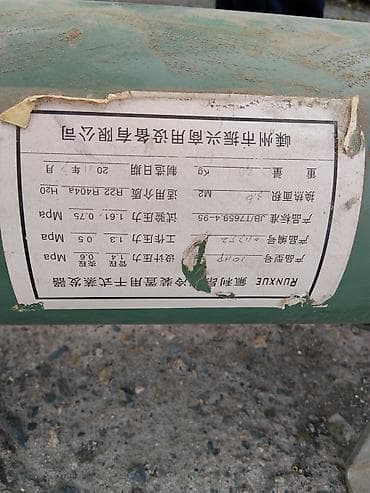 RUNXUE 氟利 冷装置用干式蒸发器
产品型号 10HP 设计压力 管程 1.4 壳程 0.6 Mpa
产品编号 工作压力 1.3 0.5 Mpa
产品标准 JB/T7659.4-95 试验压力 1.61 0.75 Mpa
换热面积 3.0 M2 适用介质 R22 R404a H20
重 量 Kg 制造日期 20 年 月
嵊州市振兴商用设备有限公司